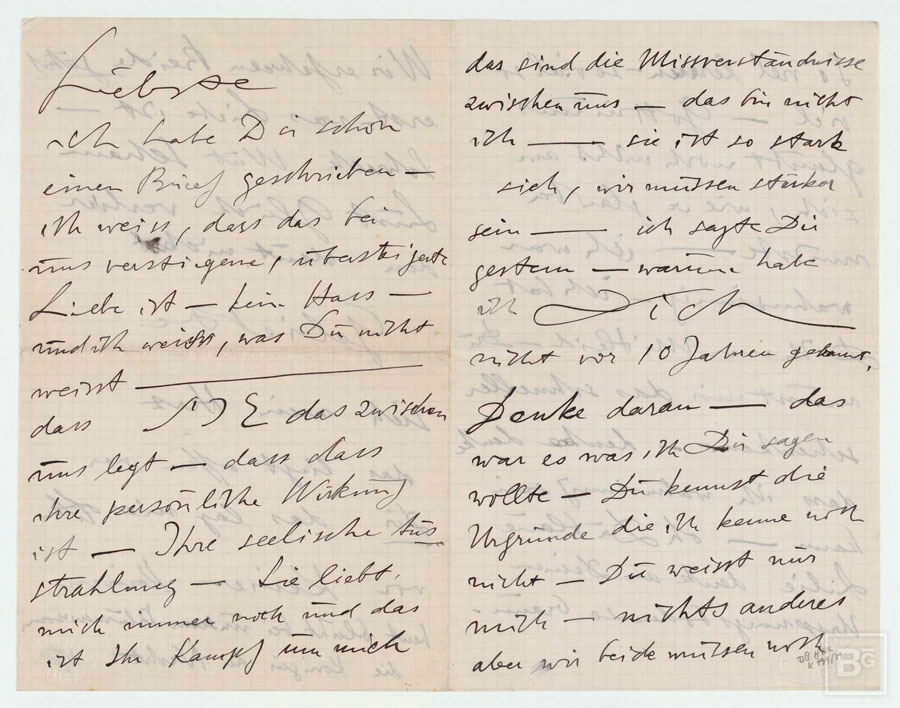 Liebste
ich habe Dir schon
einen Brief geschrieben —
ich weiss, dass das bei
uns verstiegene, übersteigerte
Liebe ist — kein Hass —
und ich weiss, was Du nicht
weisst ———
dass SIE das zwischen
uns legt — dass das
ihre persönliche Wirkung
ist — Ihre seelische Aus
strahlung — Sie liebt
mich immer noch und das
ist Ihr Kampf um mich
das sind die Missverständnisse
zwischen uns — das bin nicht
ich —— sie ist so stark
sich, wir müssen stärker
sein —— ich sagte Dir
gestern — warum habe
ich Dich
nicht vor 10 Jahren gekannt,
Denke daran — das
war es was ich Dir sagen
wollte — Du kennst die
Urgründe die ich kenne noch
nicht — Du weisst nur
mich — nichts anderes
aber wir beide müssen noch
BG